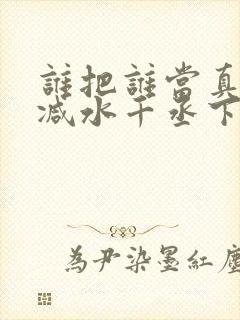 誰把誰當真
减水千丞下
為尹染墨紅塵